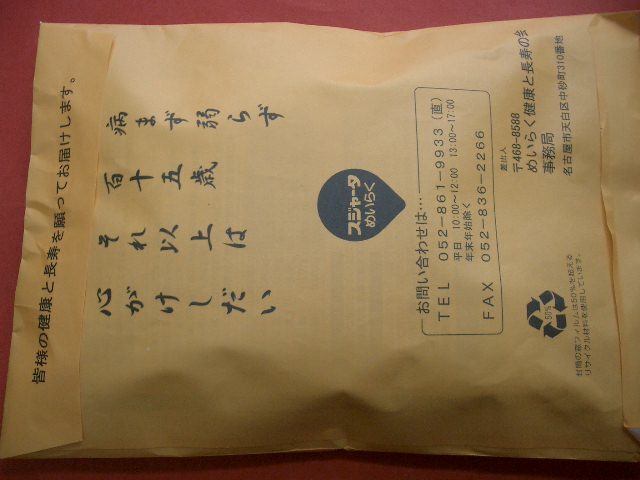 皆様の健康と長寿を願ってお届けします。
病まず弱らず
百十五歳
それ以上は
心がけしだい
スジャータ
めいらく
お問い合わせは…
TEL 052-861-9933(直)
平日 10:00～12:00 13:00～17:00
年末年始除く
FAX 052-836-2266
差出人
〒468-8588
めいらく健康と長寿の会
事務局
名古屋市天白区中砂町310番地
50%
封筒の窓フィルムは50%を超える
リサイクル材料を使用しています。